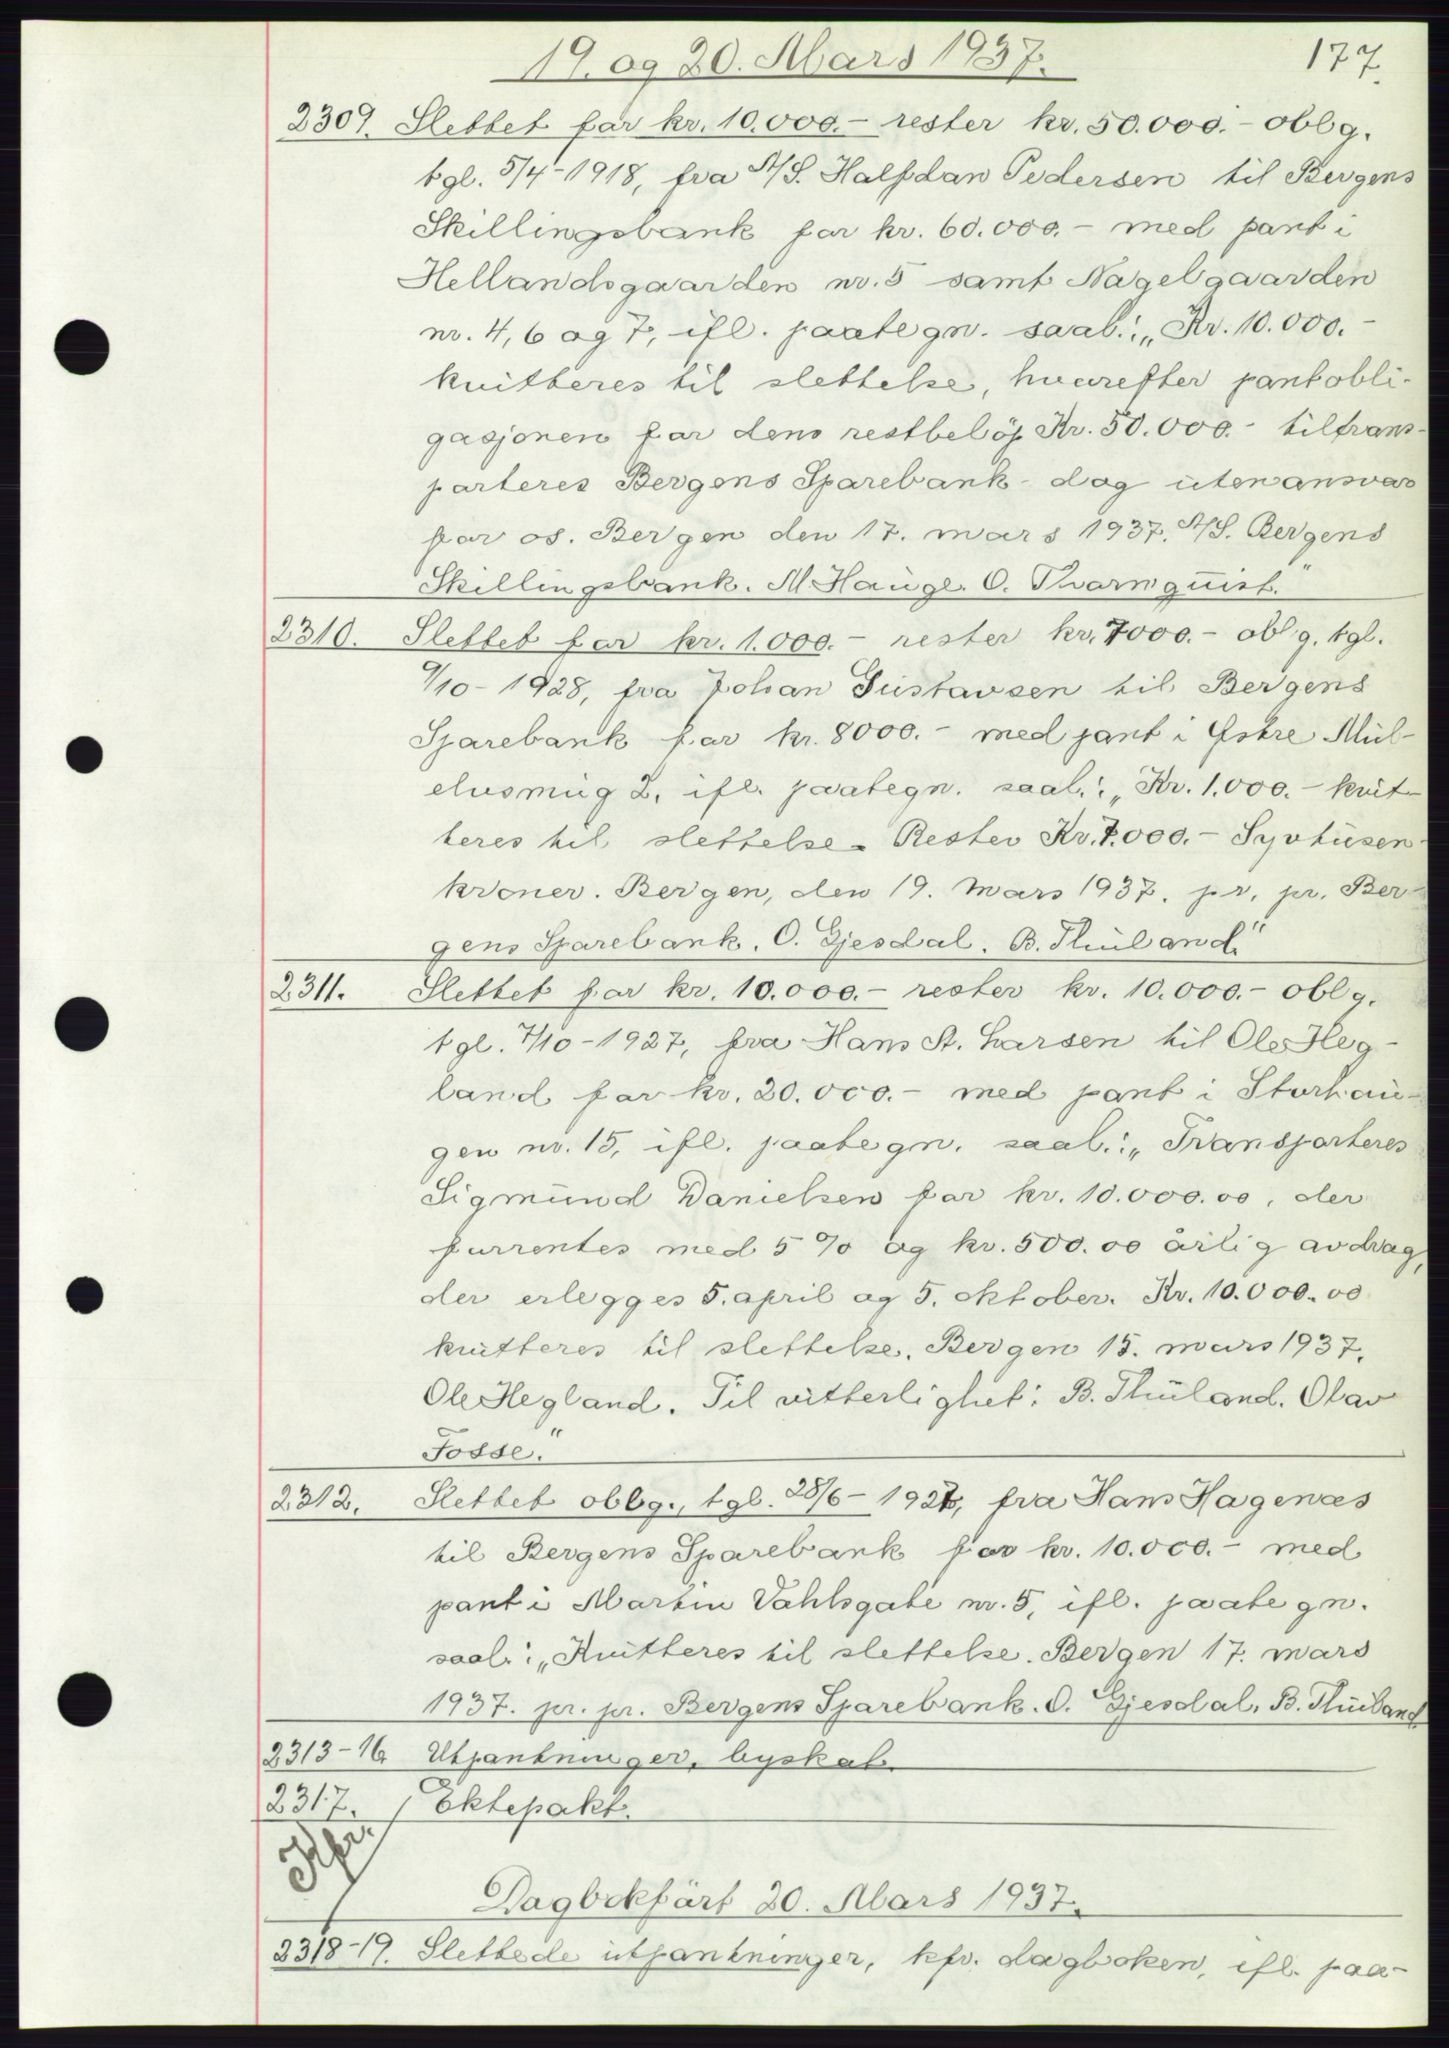 19. og 20. Mars 1937.
177.
2309. Slettet for kr. 10.000.- rester kr. 50.000.- oblg.
tgl. 5/4-1918, fra A/S. Halfdan Pedersen til Bergens
Skillingsbank for kr. 60.000.- med pant i
Hellandsgaarden nr. 5 samt Nagelgaarden
nr. 4, 6 og 7, ifl. paategn. saal.: „Kr. 10.000.-
kvitteres til slettelse, hvorefter pantobli-
gasjonen for dens restbeløp Kr. 50.000.- tiltrans-
porteres Bergens Sparebank - dog uten ansvar
for os. Bergen den 17. mars 1937. A/S. Bergens
Skillingsbank. M. Hauge. O. Thornquist."
2310. Slettet for kr. 1.000.- rester kr. 7000.- oblg. tgl.
9/10-1928, fra Johan Gustavsen til Bergens
Sparebank for kr. 8000.- med pant i Østre Mül-
elusmug 2, ifl. paategn. saal.: „Kr. 1.000.- kvit-
teres til slettelse. Rester Kr. 7.000.- Syvtusen-
kroner. Bergen, den 19. Mars 1937. pr. pr. Ber-
gens Sparebank. O. Gjesdal. B. Thuland."
2311. Slettet for kr. 10.000.- rester kr. 10.000.- oblg.
tgl. 7/10-1927, fra Hans St. Larsen til Ole Heg-
land for kr. 20.000.- med pant i Storhau-
gen nr. 15, ifl. paategn. saal.: „Transporteres
Sigmund Danielsen for kr. 10.000.00, der
forrentes med 5% og kr. 500.00 årlig avdrag,
der erlegges 5. april og 5. oktober. Kr. 10.000.00
kvitteres til slettelse. Bergen 15. mars 1937.
Ole Hegland. Til vitterlighet: B. Thuland. Olav
Fosse."
2312. Slettet oblg., tgl. 28/6-1927, fra Hans Hagenæs
til Bergens Sparebank for kr. 10.000.- med
pant i Martin Vahlsgate nr. 5, ifl. paategn.
saal.: „Kvitteres til slettelse. Bergen 17. mars
1937. pr. pr. Bergens Sparebank. O. Gjesdal, B. Thuland
2313-16 Utpantninger, byskat.
2317. Ektepakt.
Kfr.
Dagbokført 20. Mars 1937.
2318-19. Slettede utpantninger, kfr. dagboken, ifl. paa-